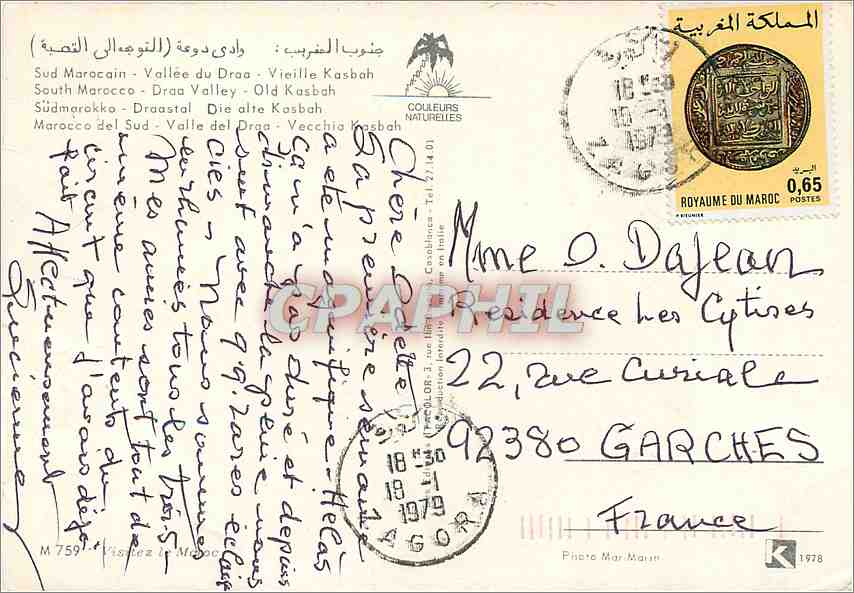 جنوب المغرب: وادي درعة (التوجه الى القصبة)
Sud Marocain - Vallée du Draa - Vieille Kasbah
South Marocco - Draa Valley - Old Kasbah
Südmarokko - Draastal Die alte Kasbah
Marocco del Sud - Valle del Draa - Vecchia Kasbah
COULEURS
NATURELLES
المملكة المغربية
البريد
0,65
POSTES
ROYAUME DU MAROC
18 1979
ZAGORA
Chère Odette
La première semaine
a été magnifique - Hélas
ça n'a pas duré et depuis
dimanche la pluie nous
suit avec qq. rares éclair
cies - Nous sommes
enrhumées tous les trois -
Mes amies sont tout de
même contents du
circuit que j'avais déjà
fait
Affectueusement
Mme O. Dajean
Residence Les Cytises
22, rue Curiale
92380 GARCHES
France
Casablanca - Tel. 27.14.01
Reproduction Interdite
CPAPHIL
18 1 1979
ZAGORA
M 759 Visitez le Maroc
Photo Mar Marin
K 1978